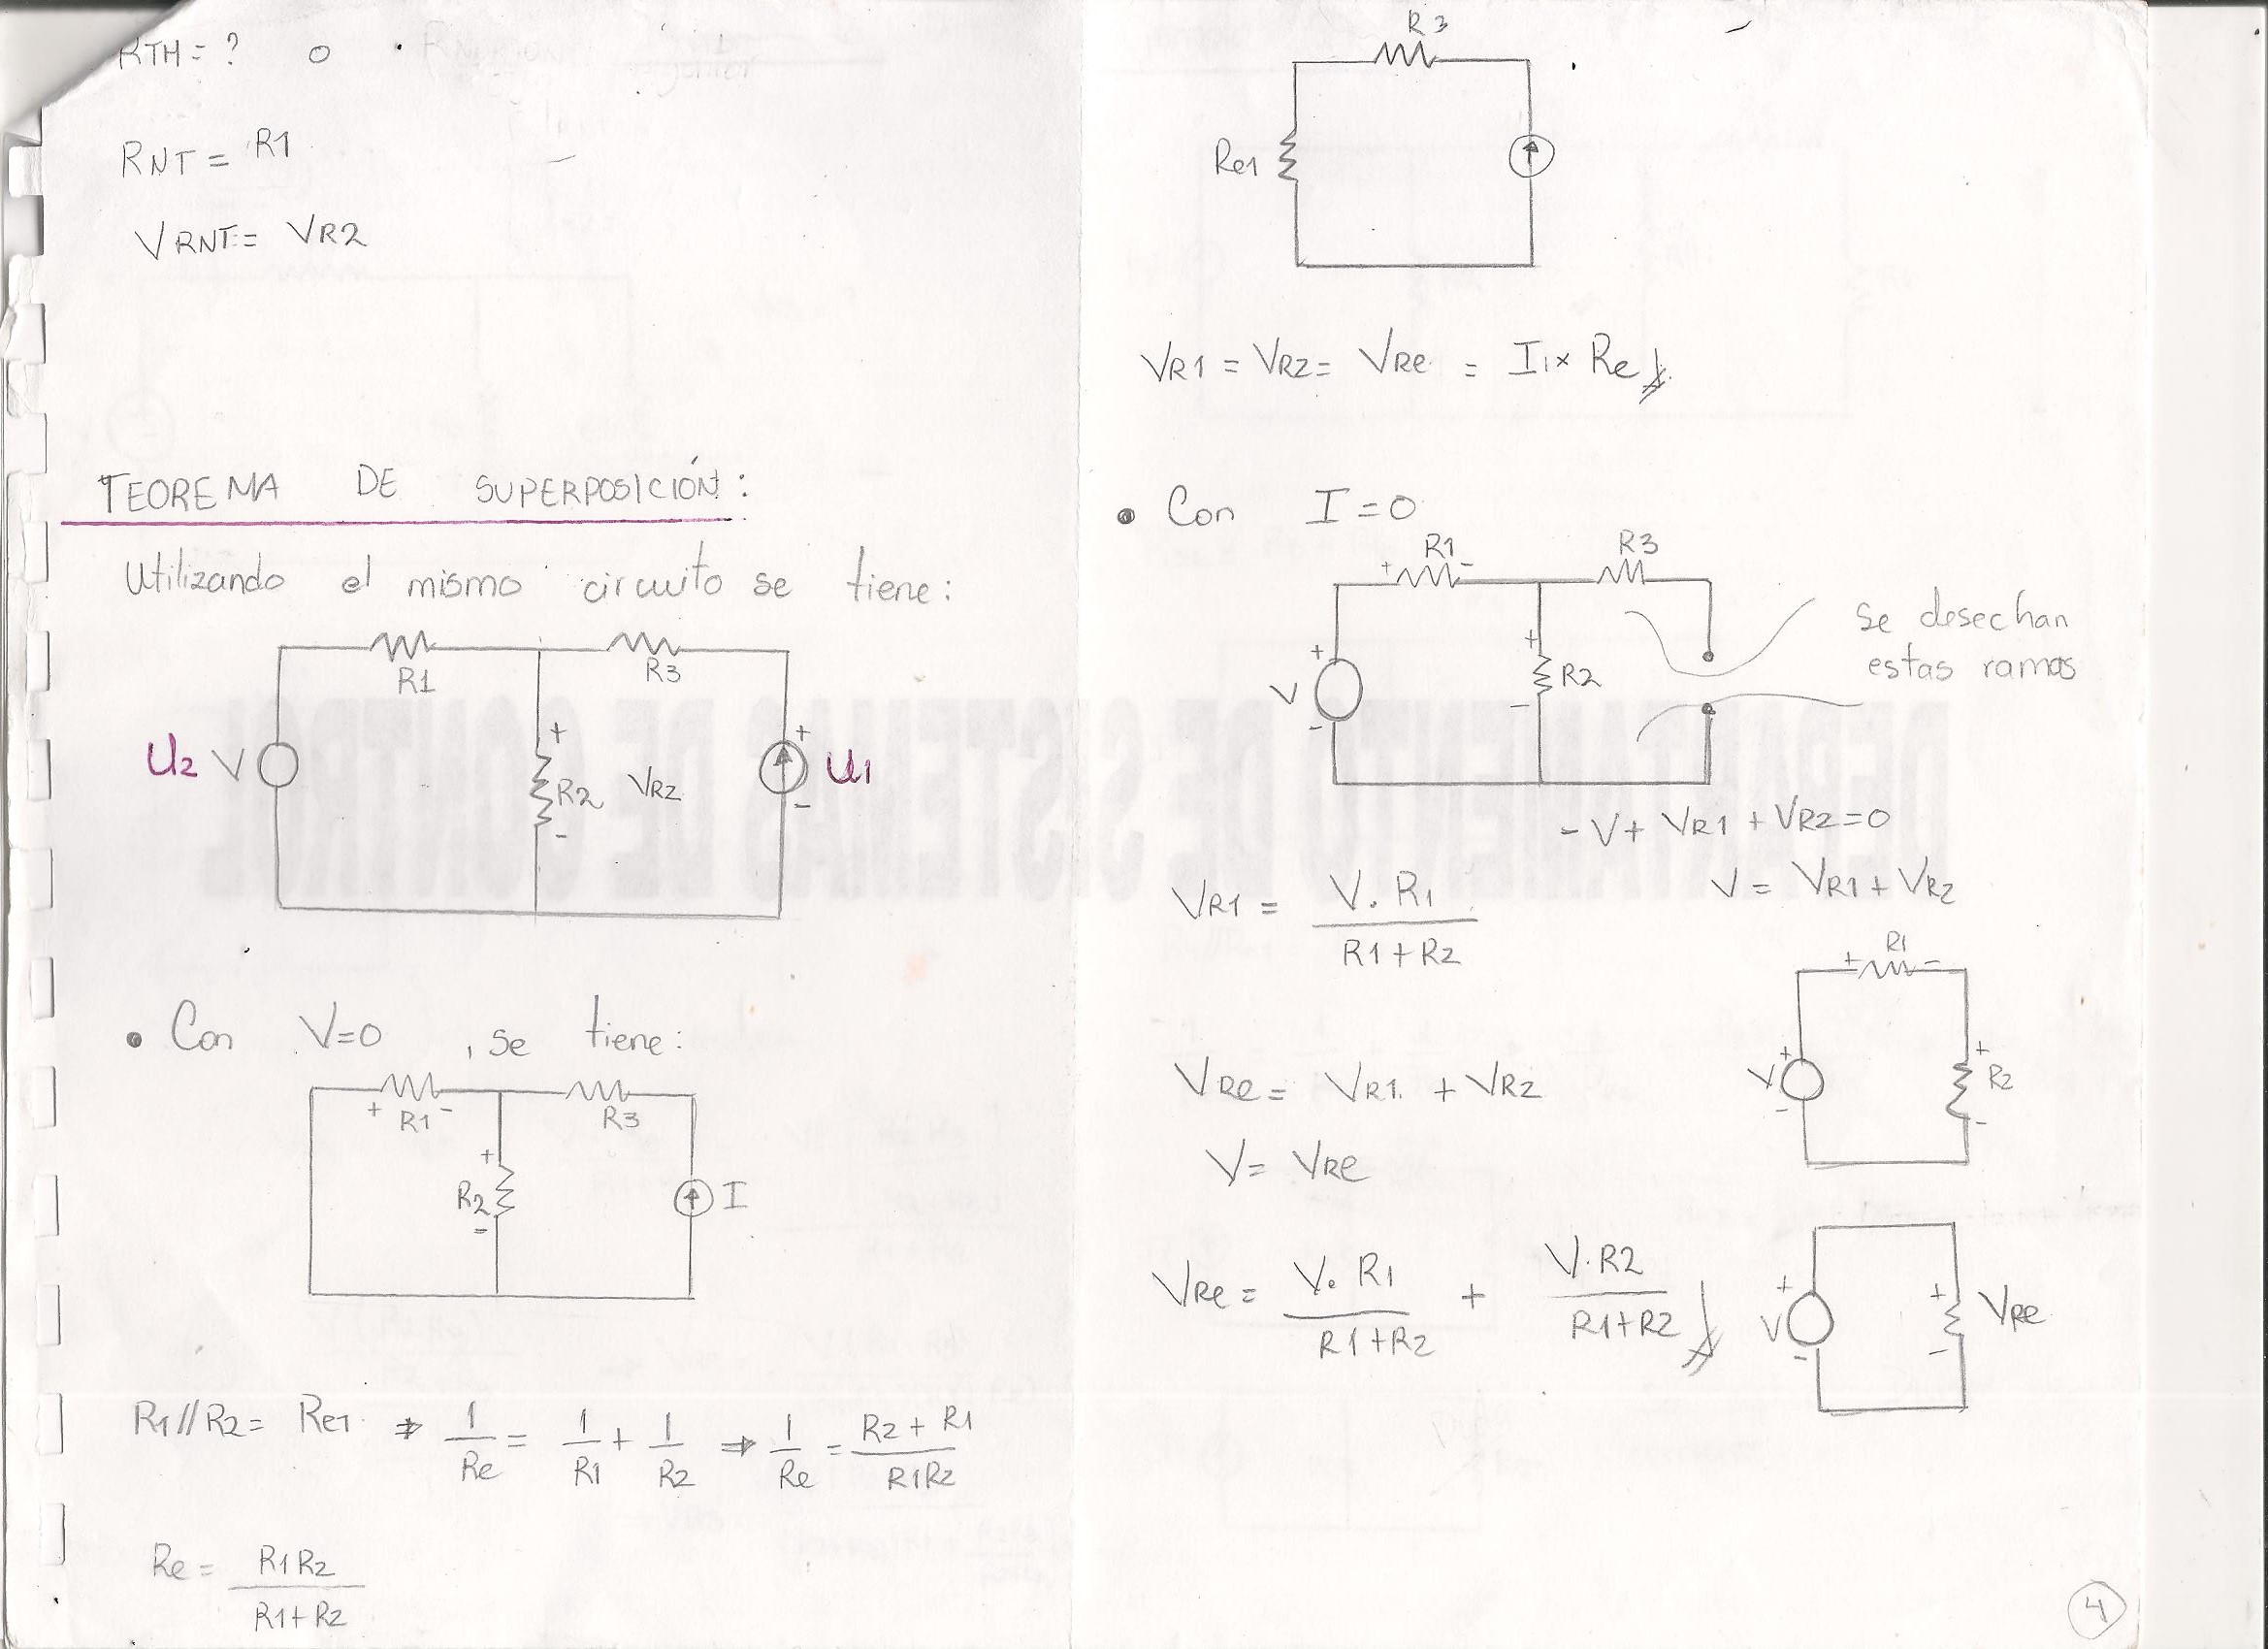 RTH = ? 0
RNT = R1
VRNT = VR2
TEOREMA DE SUPERPOSICIÓN:
Utilizando el mismo circuito se tiene:
R1
R3
U2 V
+
R2 VR2
-
+
U1
-
• Con V=0 , se tiene:
+ R1 -
R3
+
R2
-
I
R1//R2 = Re1 ⇒ 1/Re = 1/R1 + 1/R2 ⇒ 1/Re = R2 + R1/R1R2
Re = R1R2/R1+R2
R3
Re1
VR1 = VR2 = VRe = I1 x Re
• Con I=0
R1
+ -
R3
Se desechan
estas ramas
+
V
-
+
R2
-
-V + VR1 + VR2 = 0
V = VR1 + VR2
VR1 = V. R1/R1+R2
R1
+ -
+
V
-
+
R2
-
VRe = VR1 + VR2
V = VRe
VRe = V. R1/R1+R2 + V.R2/R1+R2
+
V
-
+
VRe
-
4
DEPARTAMENTO DE SISTEMAS DE CONTROL